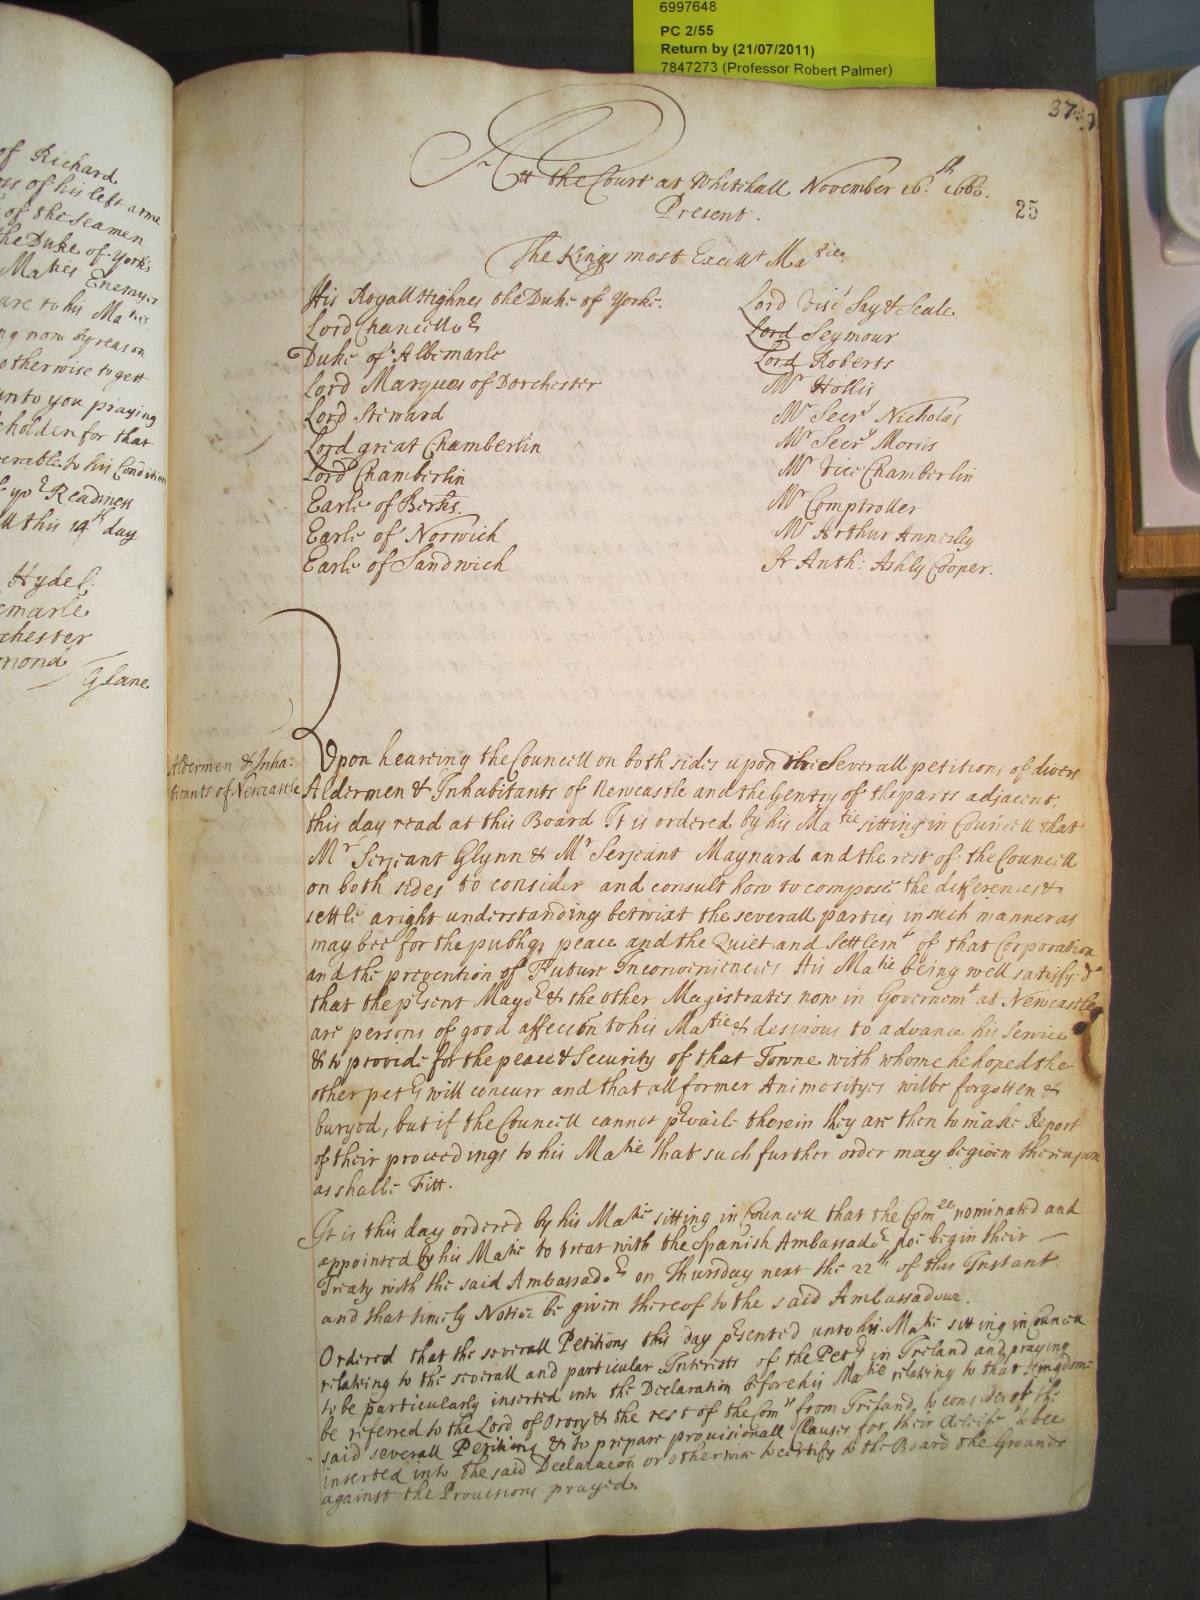 6997648
PC 2/55
Return by (21/07/2011)
7847273 (Professor Robert Palmer)
of Richard
ss of his left arme
of the Seamen
he Duke of Yorks
Maties Enemyes
are to his Maties
ng now by reason
otherwise to gett
unto you praying
holden for that
erable to his Condition
yor Readiness
ll this 19th day
Hyde C.
emarle
chester
mond
G Lane
37
25
Att the Court at Whitehall November 16.th 1660.
Present.
The Kings most Excellt Matie.
His Royall Highnes the Duke of Yorke.
Lord Chancellor
Duke of Albemarle
Lord Marques of Dorchester
Lord Steward
Lord great Chamberlin
Lord Chamberlin
Earle of Berks.
Earle of Norwich
Earle of Sandwich
Lord Visct Say & Seale
Lord Seymour
Lord Roberts
Mr Hollis
Mr Secry Nicholas
Mr Secry Morris
Mr Vice Chamberlin
Mr Comptroller
Mr Arthur Annesley
Sr Anth: Ashly Cooper.
Aldermen & Inha:
bitants of Newcastle
Upon hearing the Councell on both sides upon the Severall petitions of divers
Aldermen & Inhabitants of Newcastle and the Gentry of the parts adjacent,
this day read at this Board It is ordered by his Matie sitting in Councell that
Mr Serjeant Glynn & Mr Serjeant Maynard and the rest of the Councell
on both sides to consider and consult how to compose the differences &
settle a right understanding betwixt the severall parties in such manner as
may bee for the publiq peace and the Quiet and Settlemt of that Corporation
and the prevention of Future Inconveniencies His Matie being well satisfyed
that the pSent Mayor & the other Magistrates now in Governemt at Newcastle
are persons of good affeccon to his Matie & desirous to advance his Service
& to provide for the peace & Security of that Towne with whome he hoped the
other petrs will concurr and that all former Animosityes wilbe forgotten &
buryed, but if the Councell cannot pvaile therein they are then to make Report
of their proceedings to his Matie that such further order may be given thereupon
as shalbe Fitt.
It is this day ordered by his Matie sitting in Councell that the Comee nominated and
appointed by his Matie to treat with the Spanish Ambassador doe begin their
Treaty with the said Ambassador on Thursday next the 22th of this Instant
and that timely Notice be given thereof to the said Ambassadour.
Ordered that the severall Petitions this day pSented unto his Matie sitting in Councell
relating to the severall and particular Interests of the Petrs in Ireland and praying
to be particularly inserted into the Declaration before his Matie relating to that Kingdome
be referred to the Lord of Orory & the rest of the Comrs from Ireland, to consider of the
said severall Petitions & to prepare provisionall Clauses for their Releife to bee
inserted into the said Declaracon or otherwise to certify to the Board the Grounds
against the Provisions prayed.